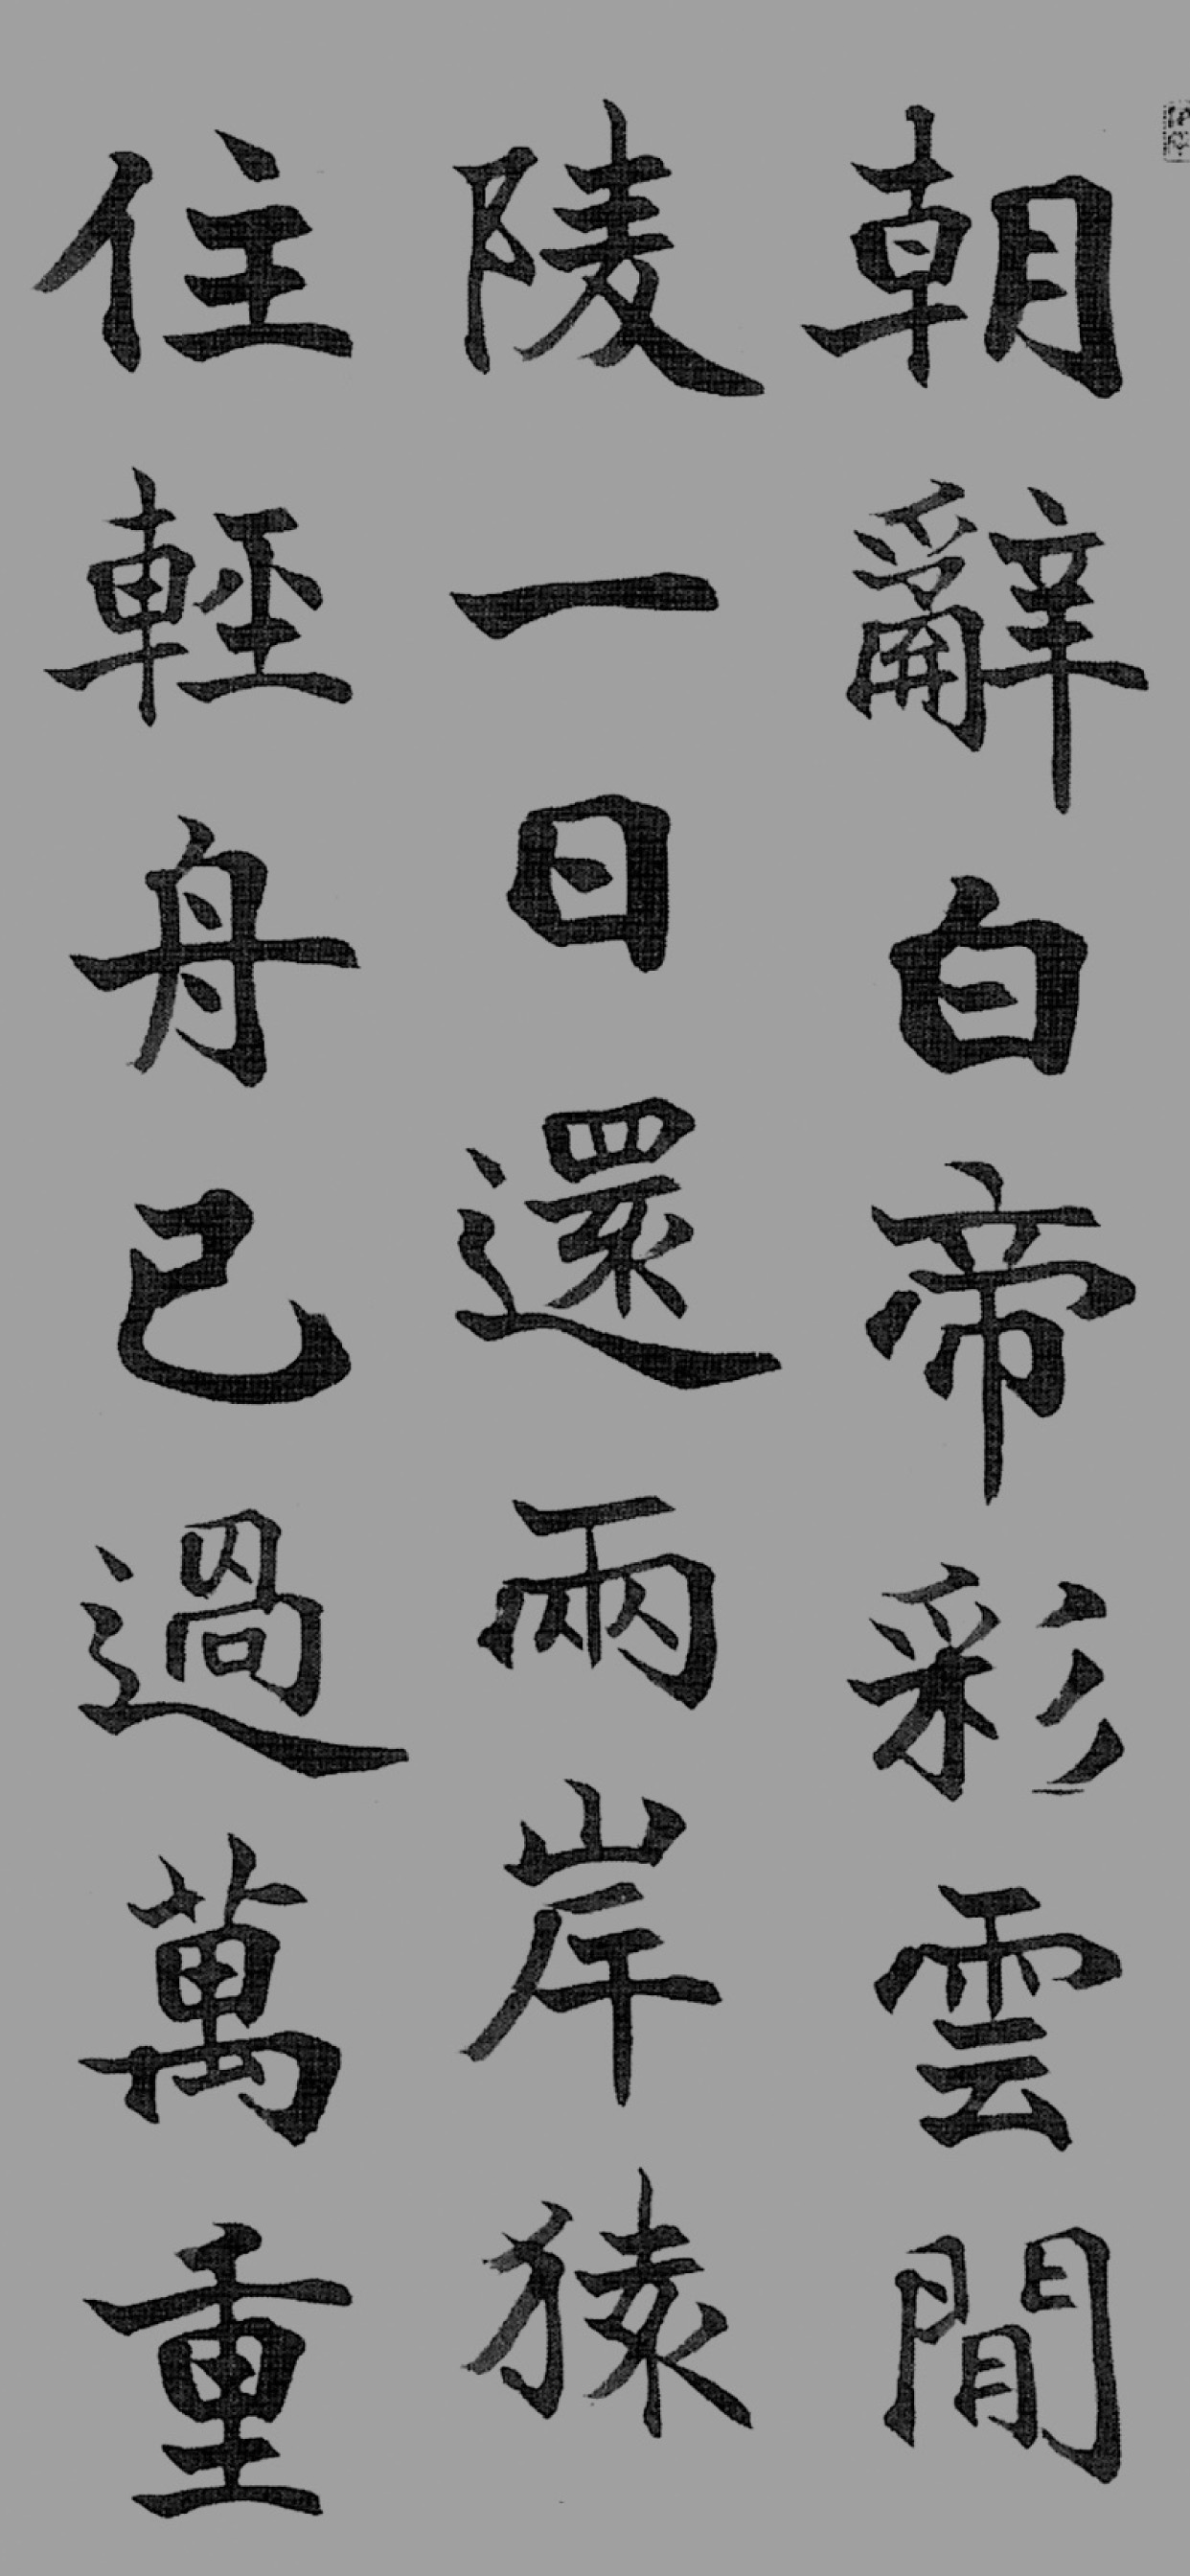 朝辭白帝彩雲間
陵一日還兩岸猿
住輕舟已過萬重